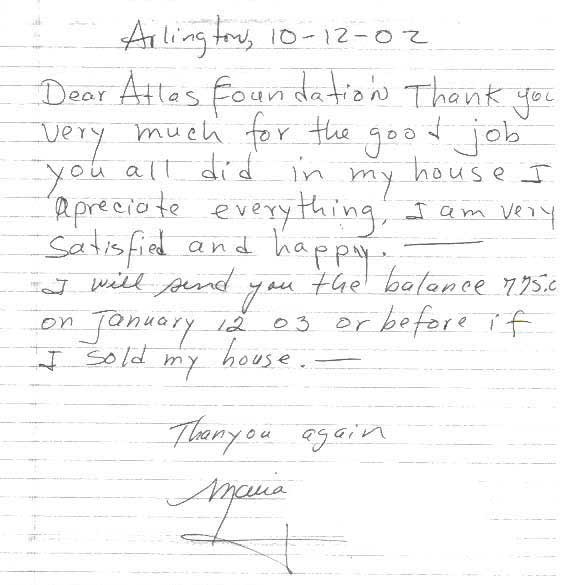 Arlington, 10-12-02
Dear Atlas Foundation Thank you
very much for the good job
you all did in my house I
apreciate everything, I am very
Satisfied and happy. —
I will send you the balance 775.0
on January 12 03 or before if
I sold my house. —
Thanyou again
Maria